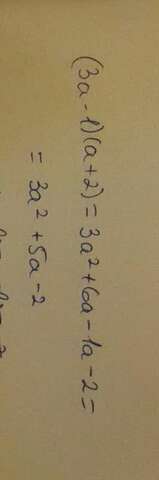 (3a-1)(a+2) = 3a²+6a-1a-2=
= 3a²+5a-2